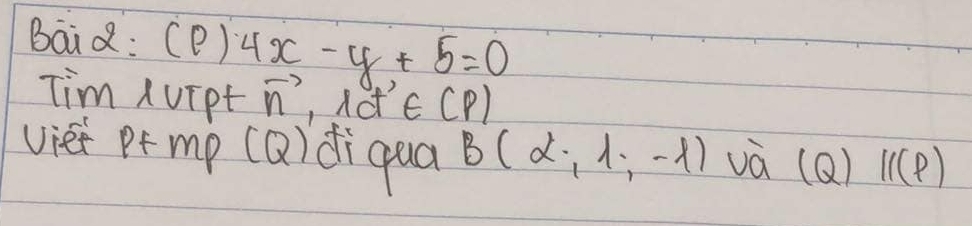 Bài 2: (P) 4x - y + 5 = 0
Tìm 1 VTPT n⃗, 1đ' ∈ (P)
Viết Pt mp (Q) đi qua B (2; 1; -1) và (Q) // (P)